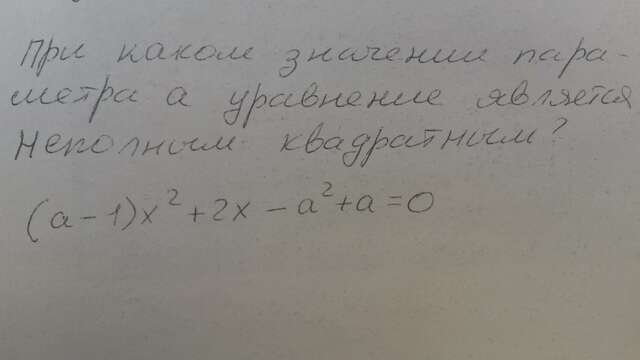 При каком значении пара-
метра а уравнение является
Неполным квадратным?
(а-1)x²+2x-a²+a=0